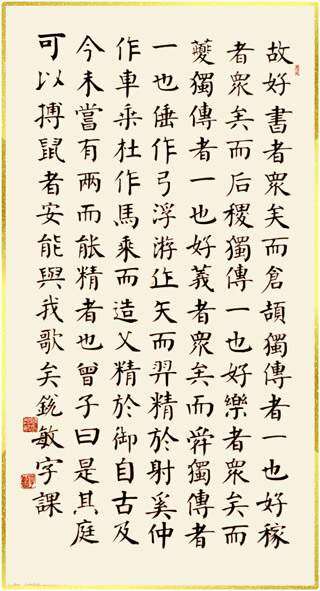 故好書者衆矣而倉頡獨傳者一也好稼
者衆矣而后稷獨傳一也好樂者衆矣而
夔獨傳者一也好義者衆矣而舜獨傳者
一也倕作弓浮游作矢而羿精於射奚仲
作車乘杜作馬乘而造父精於御自古及
今未嘗有兩而能精者也曾子曰是其庭
可以搏鼠者安能與我歌矣銳敏字課